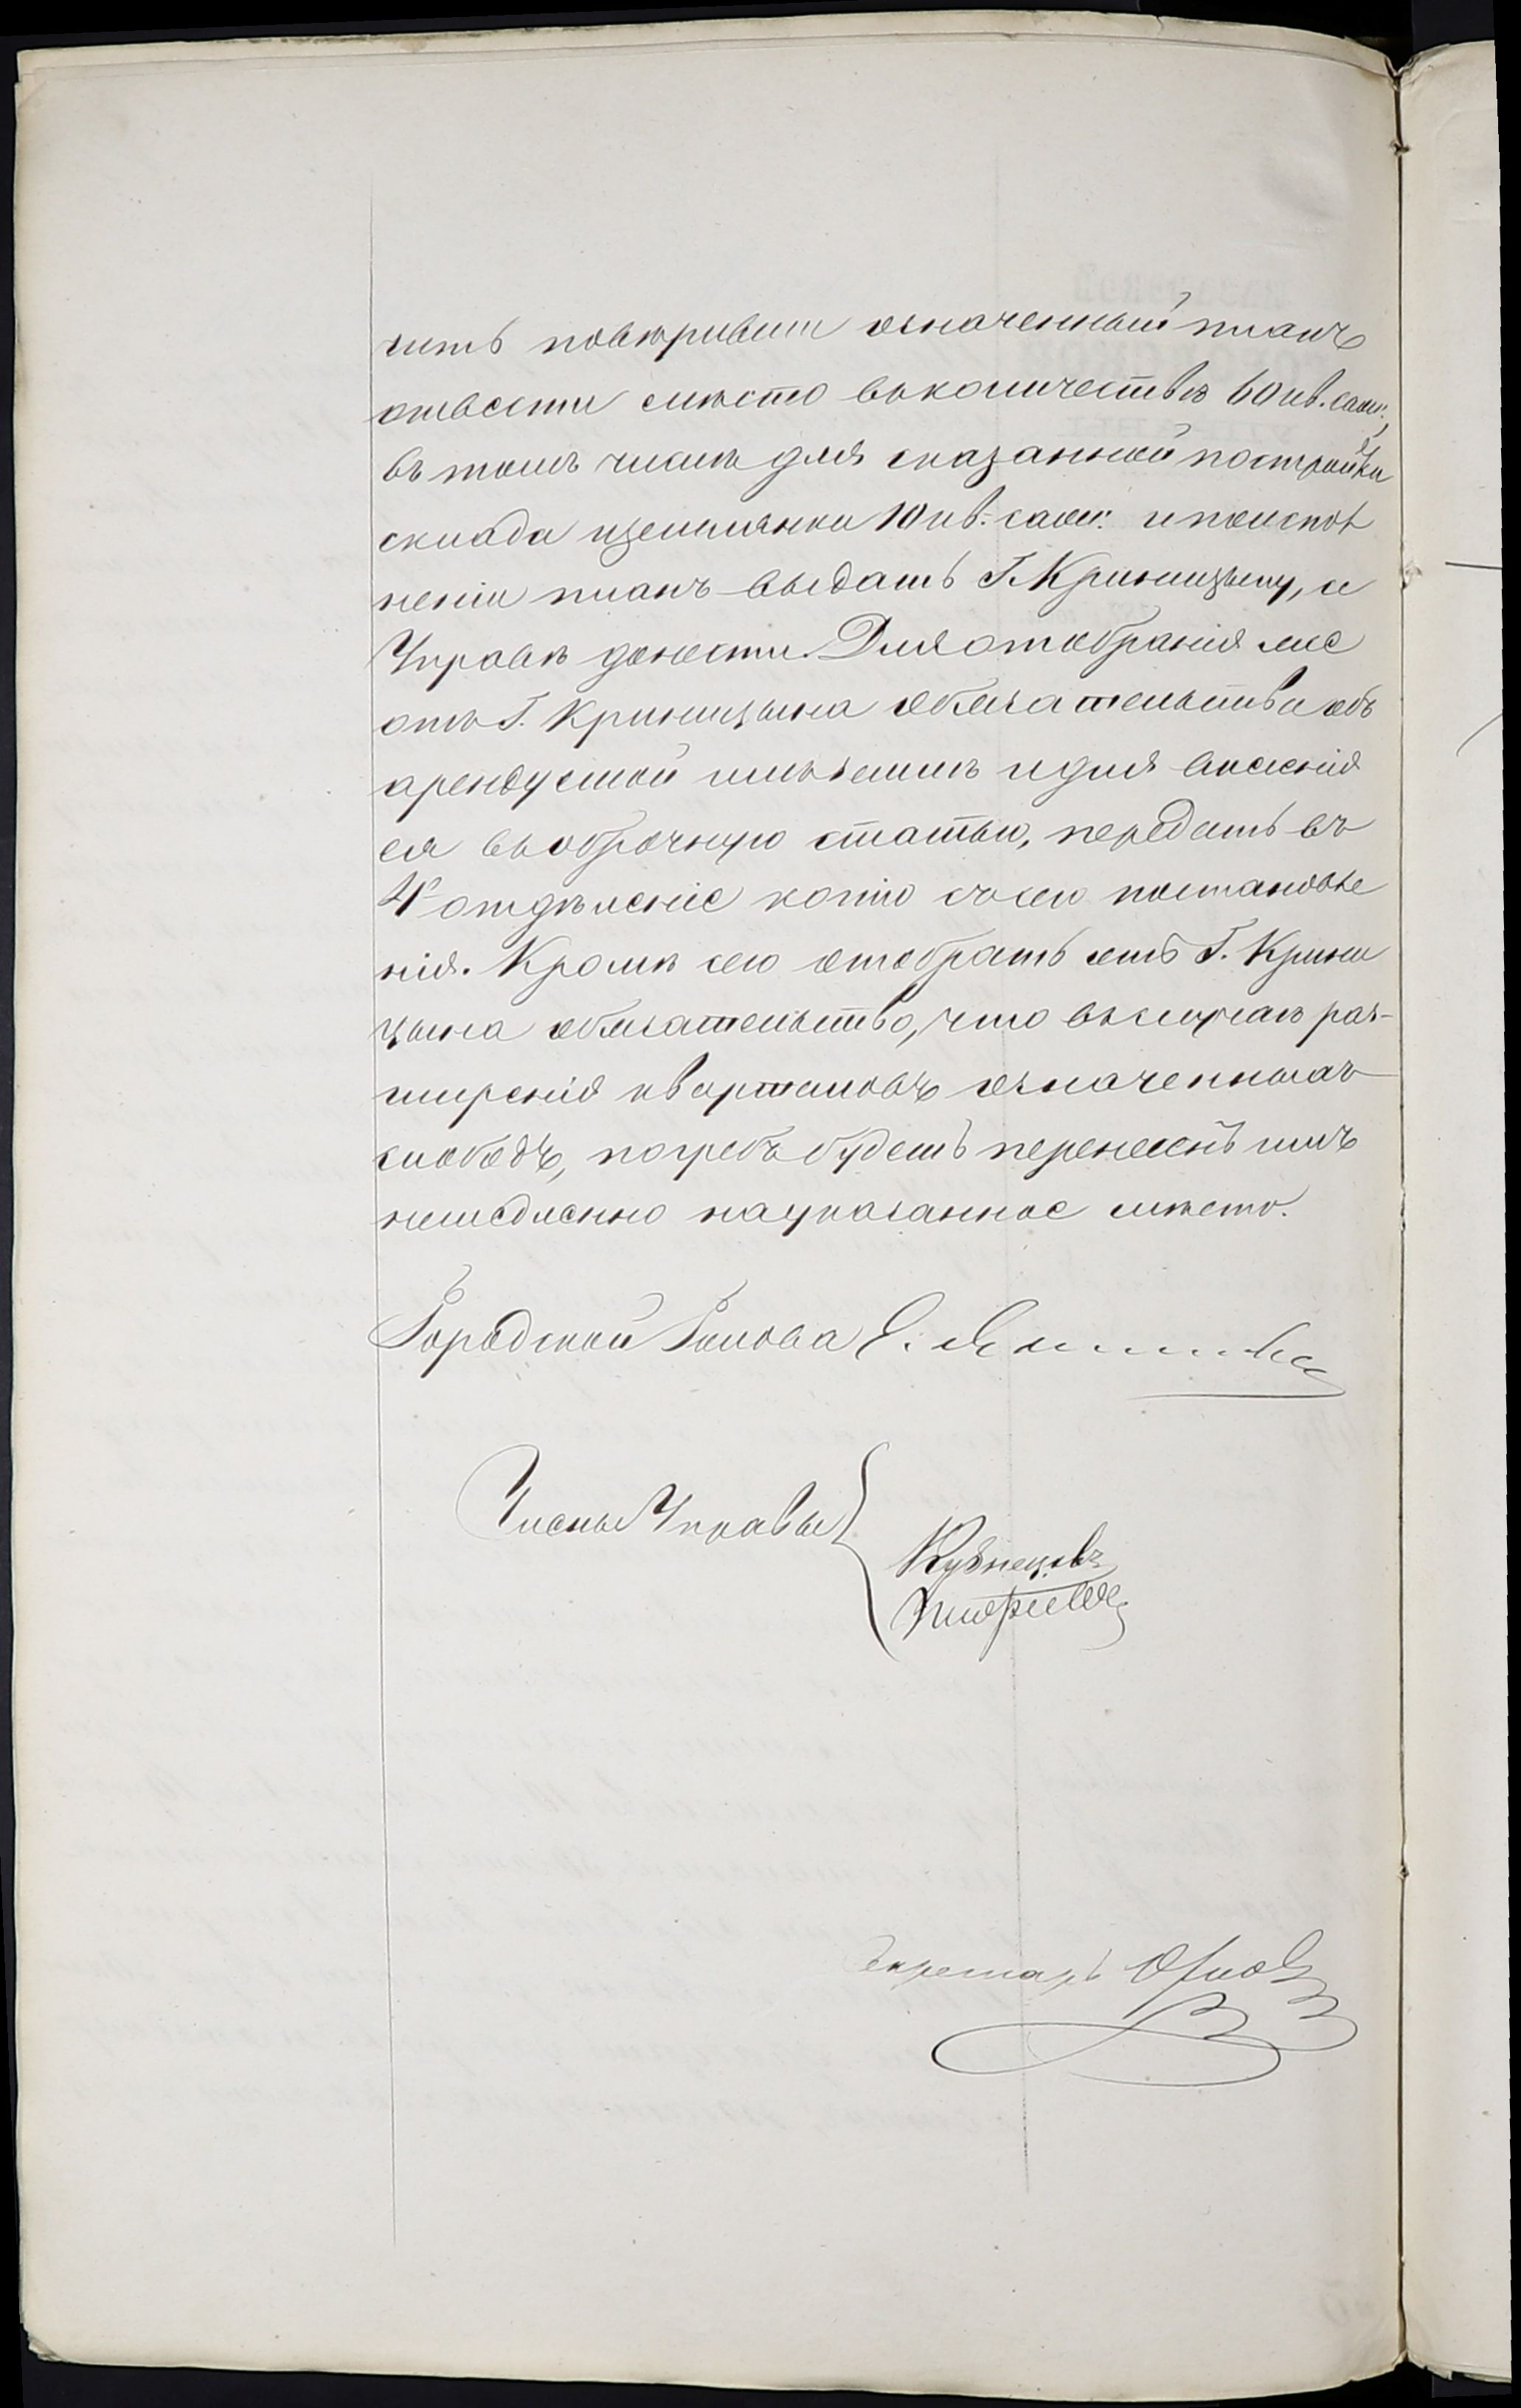 чить повѣривши означенный планъ
отвести мѣсто въ количествѣ 60 кв. саж.,
въ томъ числѣ для сказанной постройки
склада и землянки 10 кв. саж. и по испол
неніи планъ выдать Г. Криницыну, и
Управѣ донести. Для отобранія же
отъ Г. Криницына обязательства объ
арендуемой имъ землѣ и для внесенія
ея въ оброчную статью, передать въ
4е отдѣленіе копію съ сего постановле
нія. Кромѣ сего отобрать отъ Г. Крини
цына обязательство, что въ случаѣ раз-
ширенія кварталовъ означенныхъ
слободъ, погребъ будетъ перенесенъ имъ
немедленно на указанное мѣсто.
Городской Голова
Члены Управы
Кузнецовъ
Секретарь Орлов